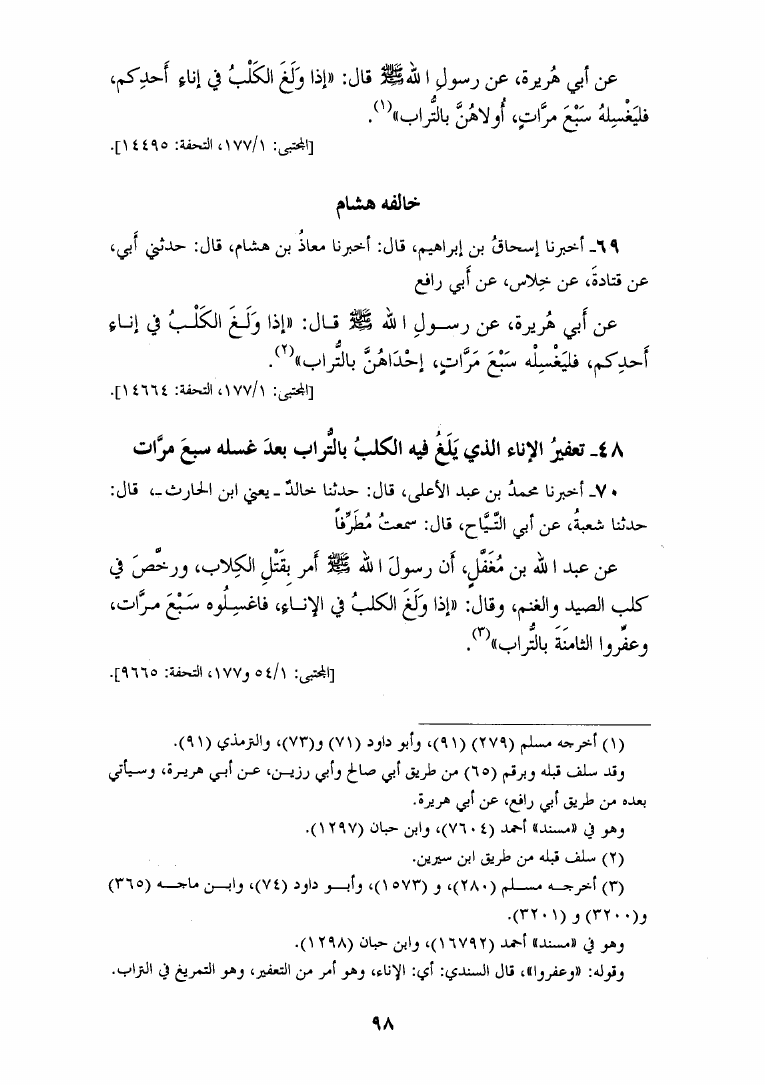 عن أبي هُريرة، عن رسولِ الله ﷺ قال: «إذا وَلَغَ الكَلْبُ في إناءِ أَحدِكم،
فليَغْسِلهُ سَبْعَ مرَّاتٍ، أُولاهُنَّ بالتُّراب»(١).
[المجتبى: ١/١٧٧، التحفة: ١٤٤٩٥].
خالفه هشام
٦٩ـ أخبرنا إسحاقُ بن إبراهيم، قال: أخبرنا معاذُ بن هشام، قال: حدثني أَبي،
عن قتادةَ، عن خِلاس، عن أَبي رافع
عن أَبي هُريرة، عن رسولِ الله ﷺ قال: «إذا وَلَغَ الكَلْبُ في إناءِ
أَحدِكم، فليَغْسِلْه سَبْعَ مَرَّاتٍ، إحْدَاهُنَّ بالتُّراب»(٢).
[المجتبى: ١/١٧٧، التحفة: ١٤٦٦٤].
٤٨ـ تعفيرُ الإناء الذي يَلَغُ فيه الكلبُ بالتُّراب بعدَ غسله سبعَ مرَّات
٧٠ـ أخبرنا محمدُ بن عبد الأعلى، قال: حدثنا خالدٌ ـ يعني ابن الحارث ـ، قال:
حدثنا شعبةُ، عن أبي التَّيَّاح، قال: سمعتُ مُطَرِّفاً
عن عبد الله بن مُغَفَّلٍ، أن رسولَ الله ﷺ أَمر بِقَتْلِ الكِلاب، ورخَّصَ في
كلب الصيد والغنم، وقال: «إذا وَلَغَ الكلبُ في الإناءِ، فاغسِلُوه سَبْعَ مرَّات،
وعفِّروا الثامنَةَ بالتُّراب»(٣).
[المجتبى: ١/٥٤ و١٧٧، التحفة: ٩٦٦٥].
(١) أخرجه مسلم (٢٧٩) (٩١)، وأبو داود (٧١) و(٧٣)، والترمذي (٩١).
وقد سلف قبله وبرقم (٦٥) من طريق أبي صالح وأبي رزين، عن أبي هريرة، وسيأتي
بعده من طريق أبي رافع، عن أبي هريرة.
وهو في «مسند» أحمد (٧٦٠٤)، وابن حبان (١٢٩٧).
(٢) سلف قبله من طريق ابن سيرين.
(٣) أخرجه مسلم (٢٨٠)، و (١٥٧٣)، وأبو داود (٧٤)، وابن ماجه (٣٦٥)
و(٣٢٠٠) و (٣٢٠١).
وهو في «مسند» أحمد (١٦٧٩٢)، وابن حبان (١٢٩٨).
وقوله: «وعفروا»، قال السندي: أي: الإناء، وهو أمر من التعفير، وهو التمريغ في التراب.
٩٨